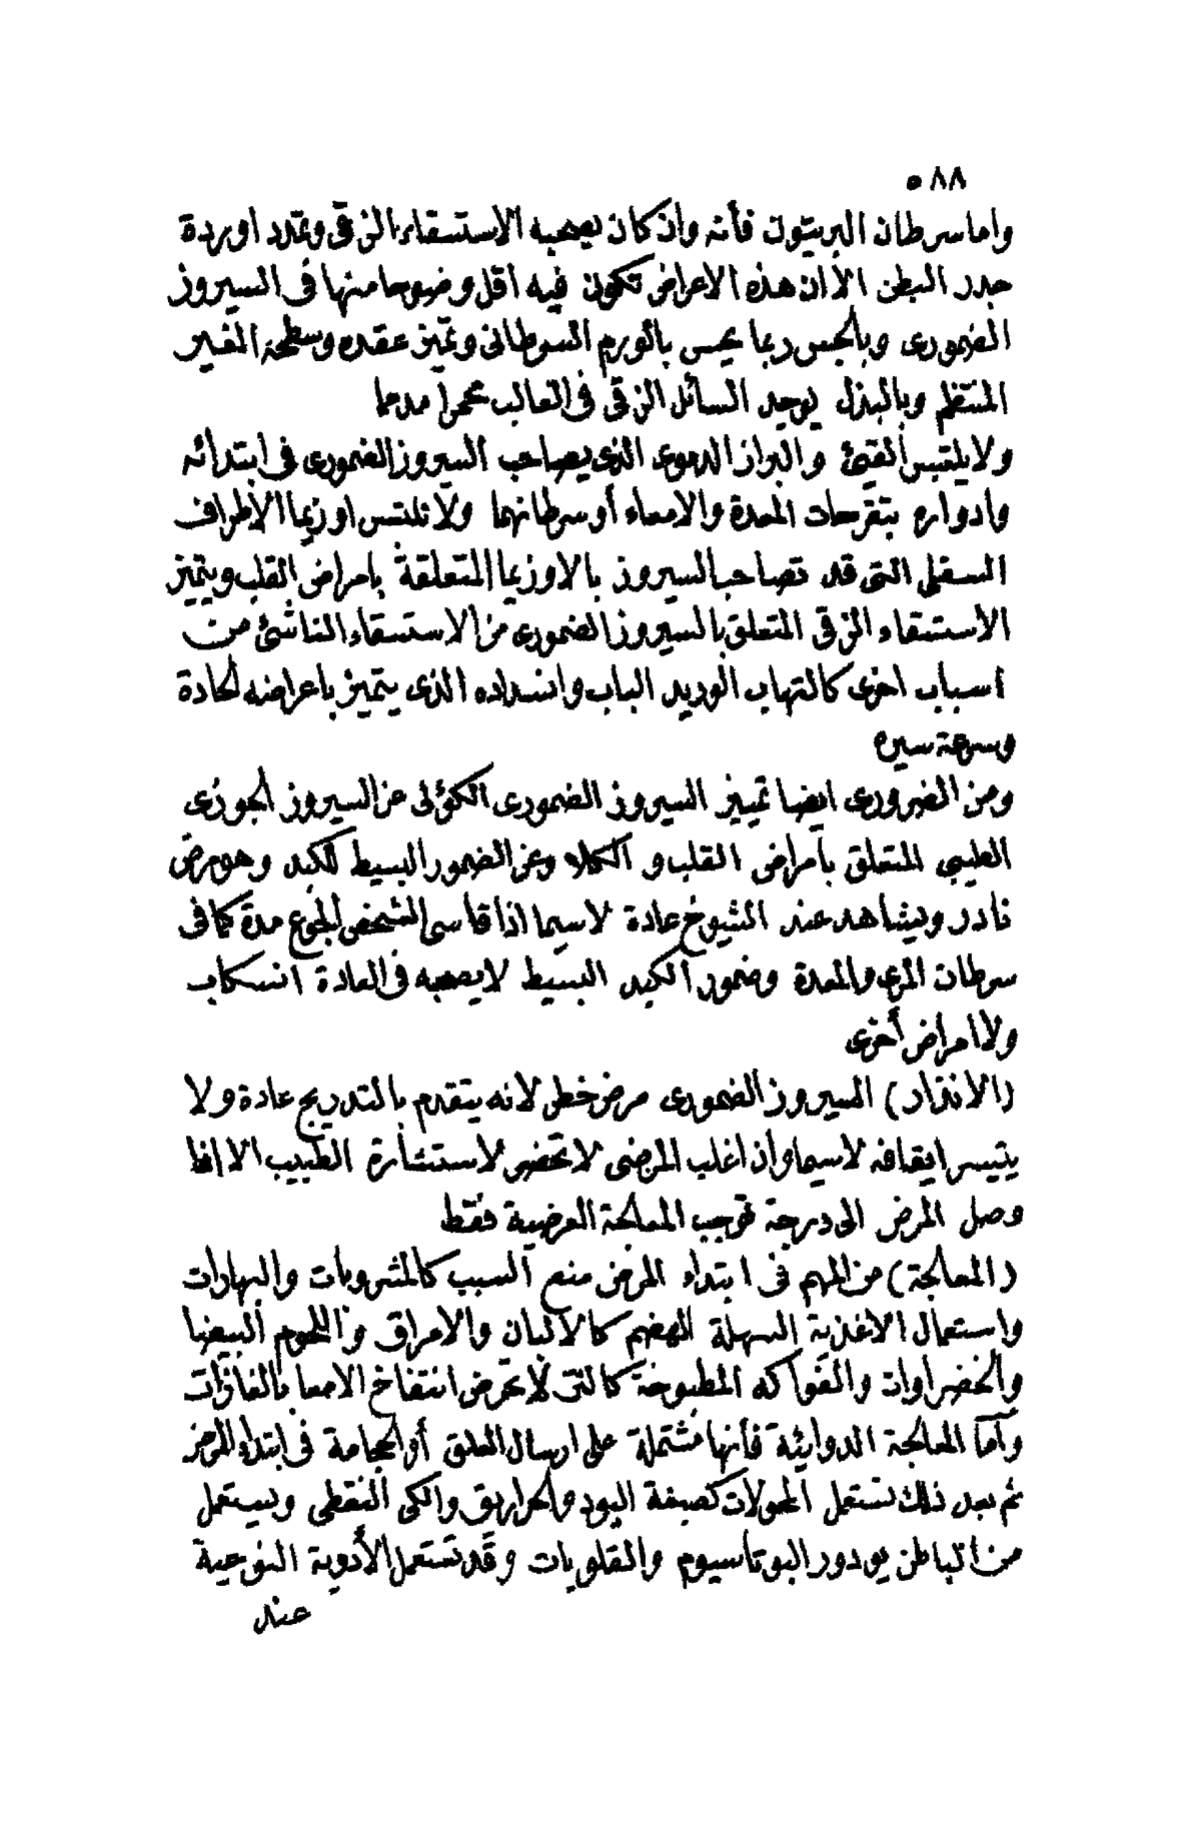 ٥٨٨
واما سرطان البريتون فأنه وان كان يصحبه الاستسقاء الزقى وتمدد اوردة
جدر البطن الاأن هذه الاعراض تكون فيه أقل وضوحا منها فى السيروز
الضمورى وبالجس ربما يحس بالورم السرطانى وتميز عقده وسطحه الغير
المنتظم وبالبزل يوجد السائل الزقى فى الغالب محمرا مدمما
ولا يلتبس القيئ والبراز الدموى الذى يصاحب السيروز الضمورى فى ابتدائه
وادواره بتقرحات المعدة والامعاء أو سرطانهما ولا تلتبس اوزيما الاطراف
السفلى التى قد تصاحب السيروز بالاوزيما المتعلقة بامراض القلب ويتميز
الاستسقاء الزقى المتعلق بالسيروز الضمورى من الاستسقاء الناشئ من
اسباب اخرى كالتهاب الوريد الباب وانسداده الذى يتميز باعراضه الحادة
وسرعة سيره
ومن الضرورى ايضا تمييز السيروز الضمورى الكؤلى عن السيروز الجوزى
الطيبى المتعلق بأمراض القلب و الكلا وعن الضمور البسيط للكبد وهو مرض
نادر ويشاهد عند الشيوخ عادة لا سيما اذا قاسى الشخص الجوع مدة كما فى
سرطان المرى والمعدة وضمور الكبد البسيط لا يصحبه فى العادة انسكاب
ولا امراض أخرى
(الانذار) السيروز الضمورى مرض خطر لانه يتقدم بالتدريج عادة ولا
يتيسر ايقافه لا سيما وان اغلب المرضى لا تحضر لاستشارة الطبيب الا اذا
وصل المرض الى درجة توجب المعالجة العرضية فقط
(المعالجة) من المهم فى ابتداء المرض منع السبب كالمشروبات والبهارات
واستعمال الاغذية السهلة الهضم كالالبان والامراق واللحوم البيضا
والخضراوات والفواكه المطبوخة كالتى لا تحرض انتفاخ الامعا بالغازات
وأما المعالجة الدوائية فأنها مشتملة على ارسال العلق أو الحجامة فى ابتداء المرض
ثم بعد ذلك تستعمل المحولات كصبغة اليود والحراريق والكى النقطى ويستعمل
من الباطن يودور البوتاسيوم والقلويات وقد تستعمل الأدوية النوعية
عند